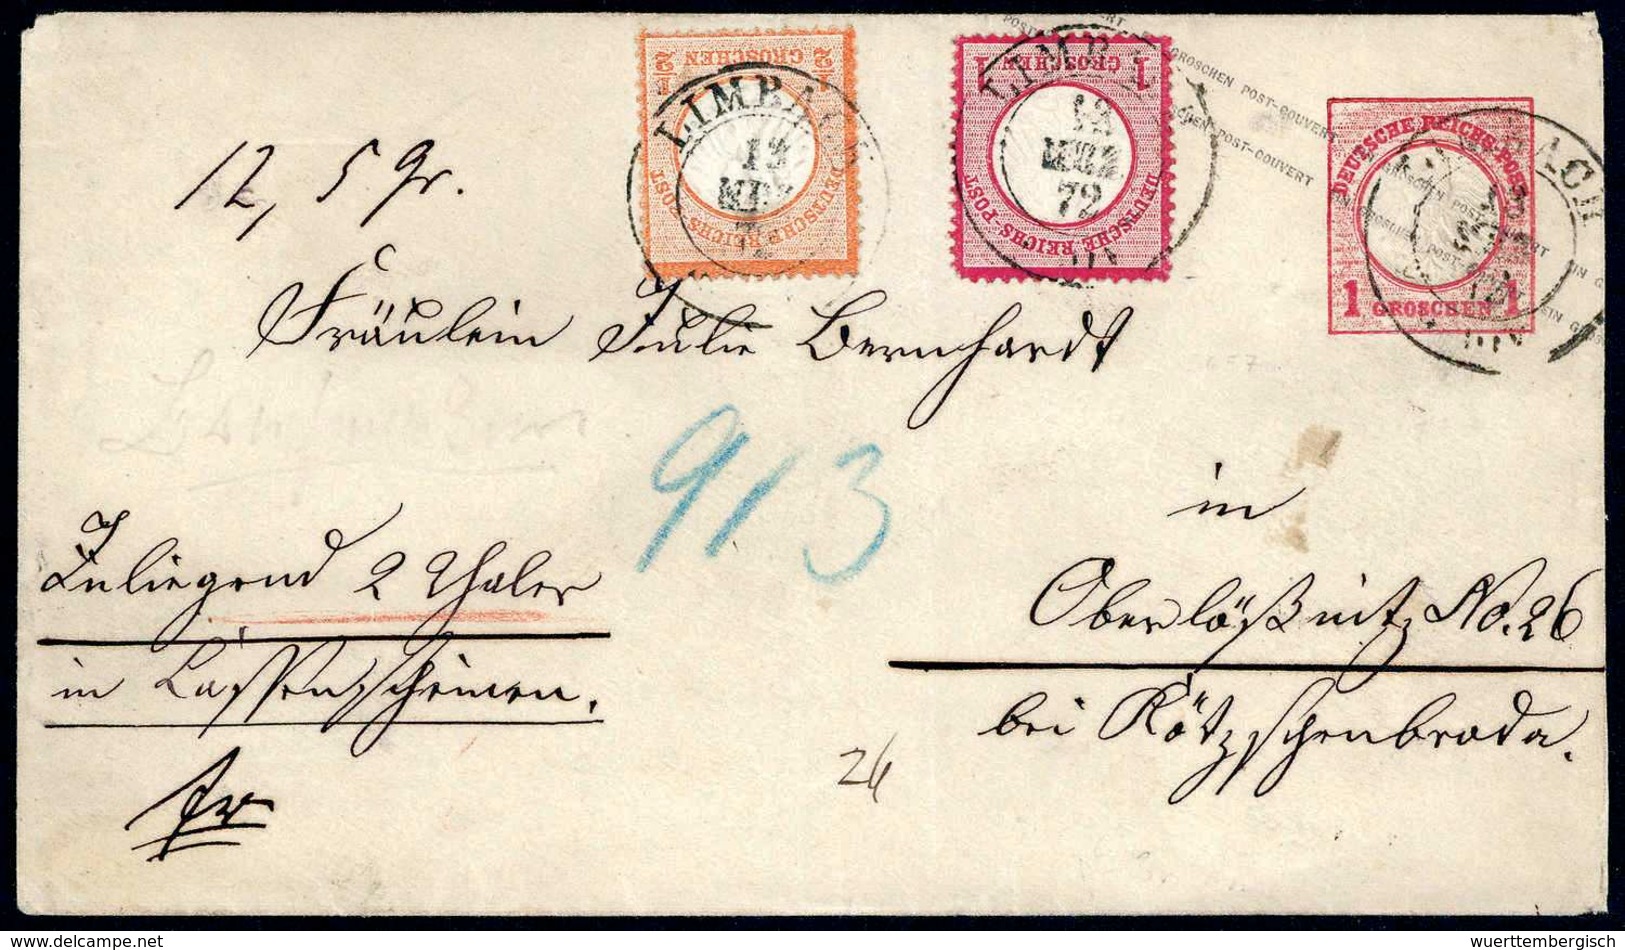 EIN GROSCHEN POST-COUVERT
1/2 GROSCHEN 1/2
DEUTSCHE REICHS-POST
LIMBACH
13
MRZ
72
1 GROSCHEN 1
DEUTSCHE REICHS-POST
LIMBACH
13
MRZ
72
III
DEUTSCHE REICHS-POST
1 GROSCHEN 1
LIMBACH
12, 5 Gr.
Fräulein Julie Bernhardt
913
in
Inliegend 2 Thaler
Oberlößnitz No. 26
in Kassenscheinen.
bei Kötzschenbroda.
fr
26
© wuerttembergisch